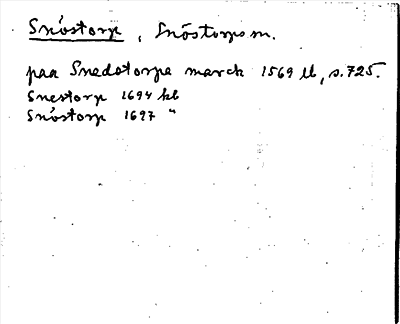 Snöstorp, Snöstorps m.
paa Snedstorpe march 1569 ll, s. 725.
Snestorp 1694 kb
Snöstorp 1697 "